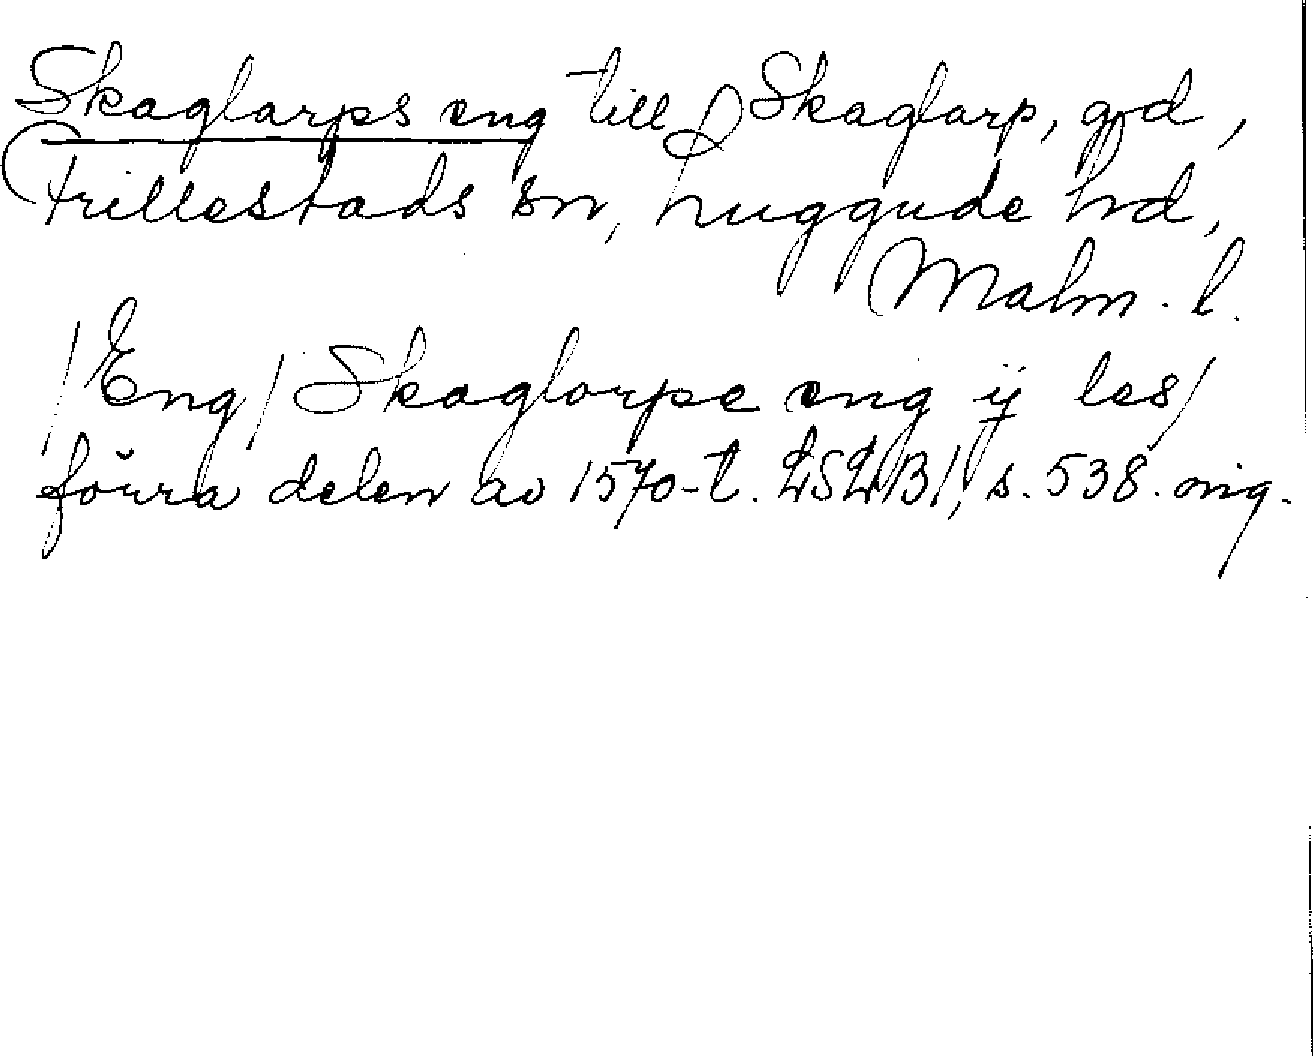 Skaglarps eng till Skaglarp, gd,
Frillestads sn, Luggude hd,
Malm. l.
/Eng/ Skaglorpe eng ij les/
förra delen av 1570-t. LSLB1, s. 538. orig.